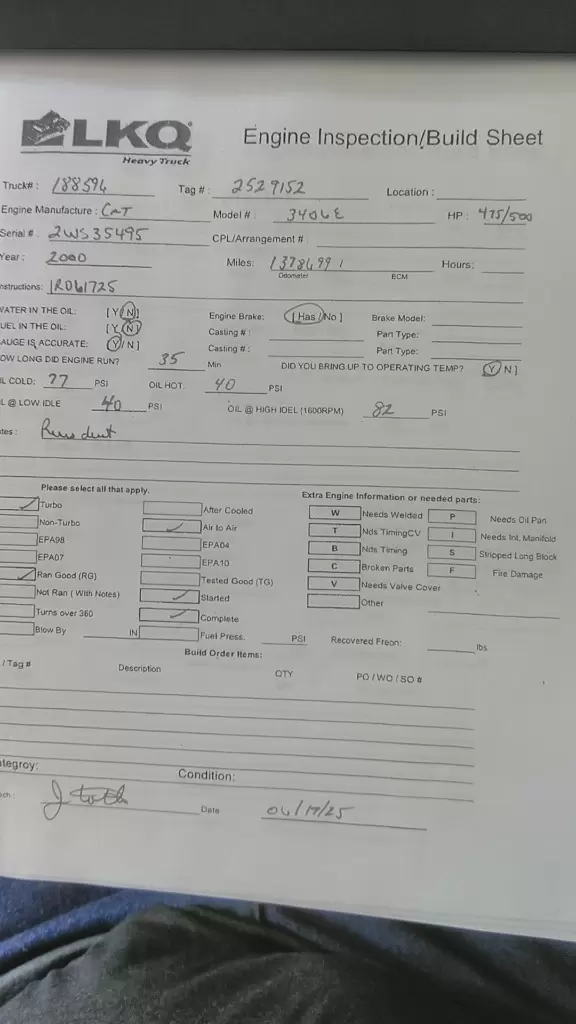 LKQ
Heavy Truck
Engine Inspection/Build Sheet
Truck# : 188594 Tag # : 2529152 Location :
Engine Manufacture : CAT Model # : 3406E HP : 475/500
Serial # 2WS35495 CPL/Arrangement # :
Year : 2000 Miles: 1378499 1 Hours:
Odometer ECM
nstructions: IR061725
WATER IN THE OIL: [ Y / N ] Engine Brake: [ Has / No ] Brake Model:
UEL IN THE OIL: [ Y / N ] Casting # : Part Type:
AUGE IS ACCURATE: [ Y / N ] Casting # : Part Type:
OW LONG DID ENGINE RUN? 35 Min DID YOU BRING UP TO OPERATING TEMP? [ Y / N ]
IL COLD: 77 PSI OIL HOT: 40 PSI
L @ LOW IDLE 40 PSI OIL @ HIGH IDEL (1600RPM) 82 PSI
tes :
Please select all that apply. Extra Engine Information or needed parts:
Turbo After Cooled W Needs Welded P Needs Oil Pan
Non-Turbo Air to Air T Nds TimingCV I Needs Int. Manifold
EPA98 EPA04 B Nds Timing S Stripped Long Block
EPA07 EPA10 C Broken Parts F Fire Damage
Ran Good (RG) Tested Good (TG) V Needs Valve Cover
Not Ran ( With Notes) Started Other
Turns over 360 Complete
Blow By IN Fuel Press. PSI Recovered Freon: lbs
Build Order Items:
/ Tag # Description QTY PO / WO / SO #
ategroy: Condition:
ech : Date 06/17/25